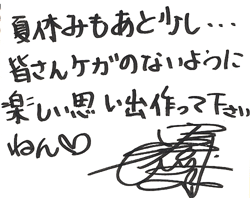 夏休みもあと少し...
皆さんケガのないように
楽しい思い出作って下さい
ねん♡